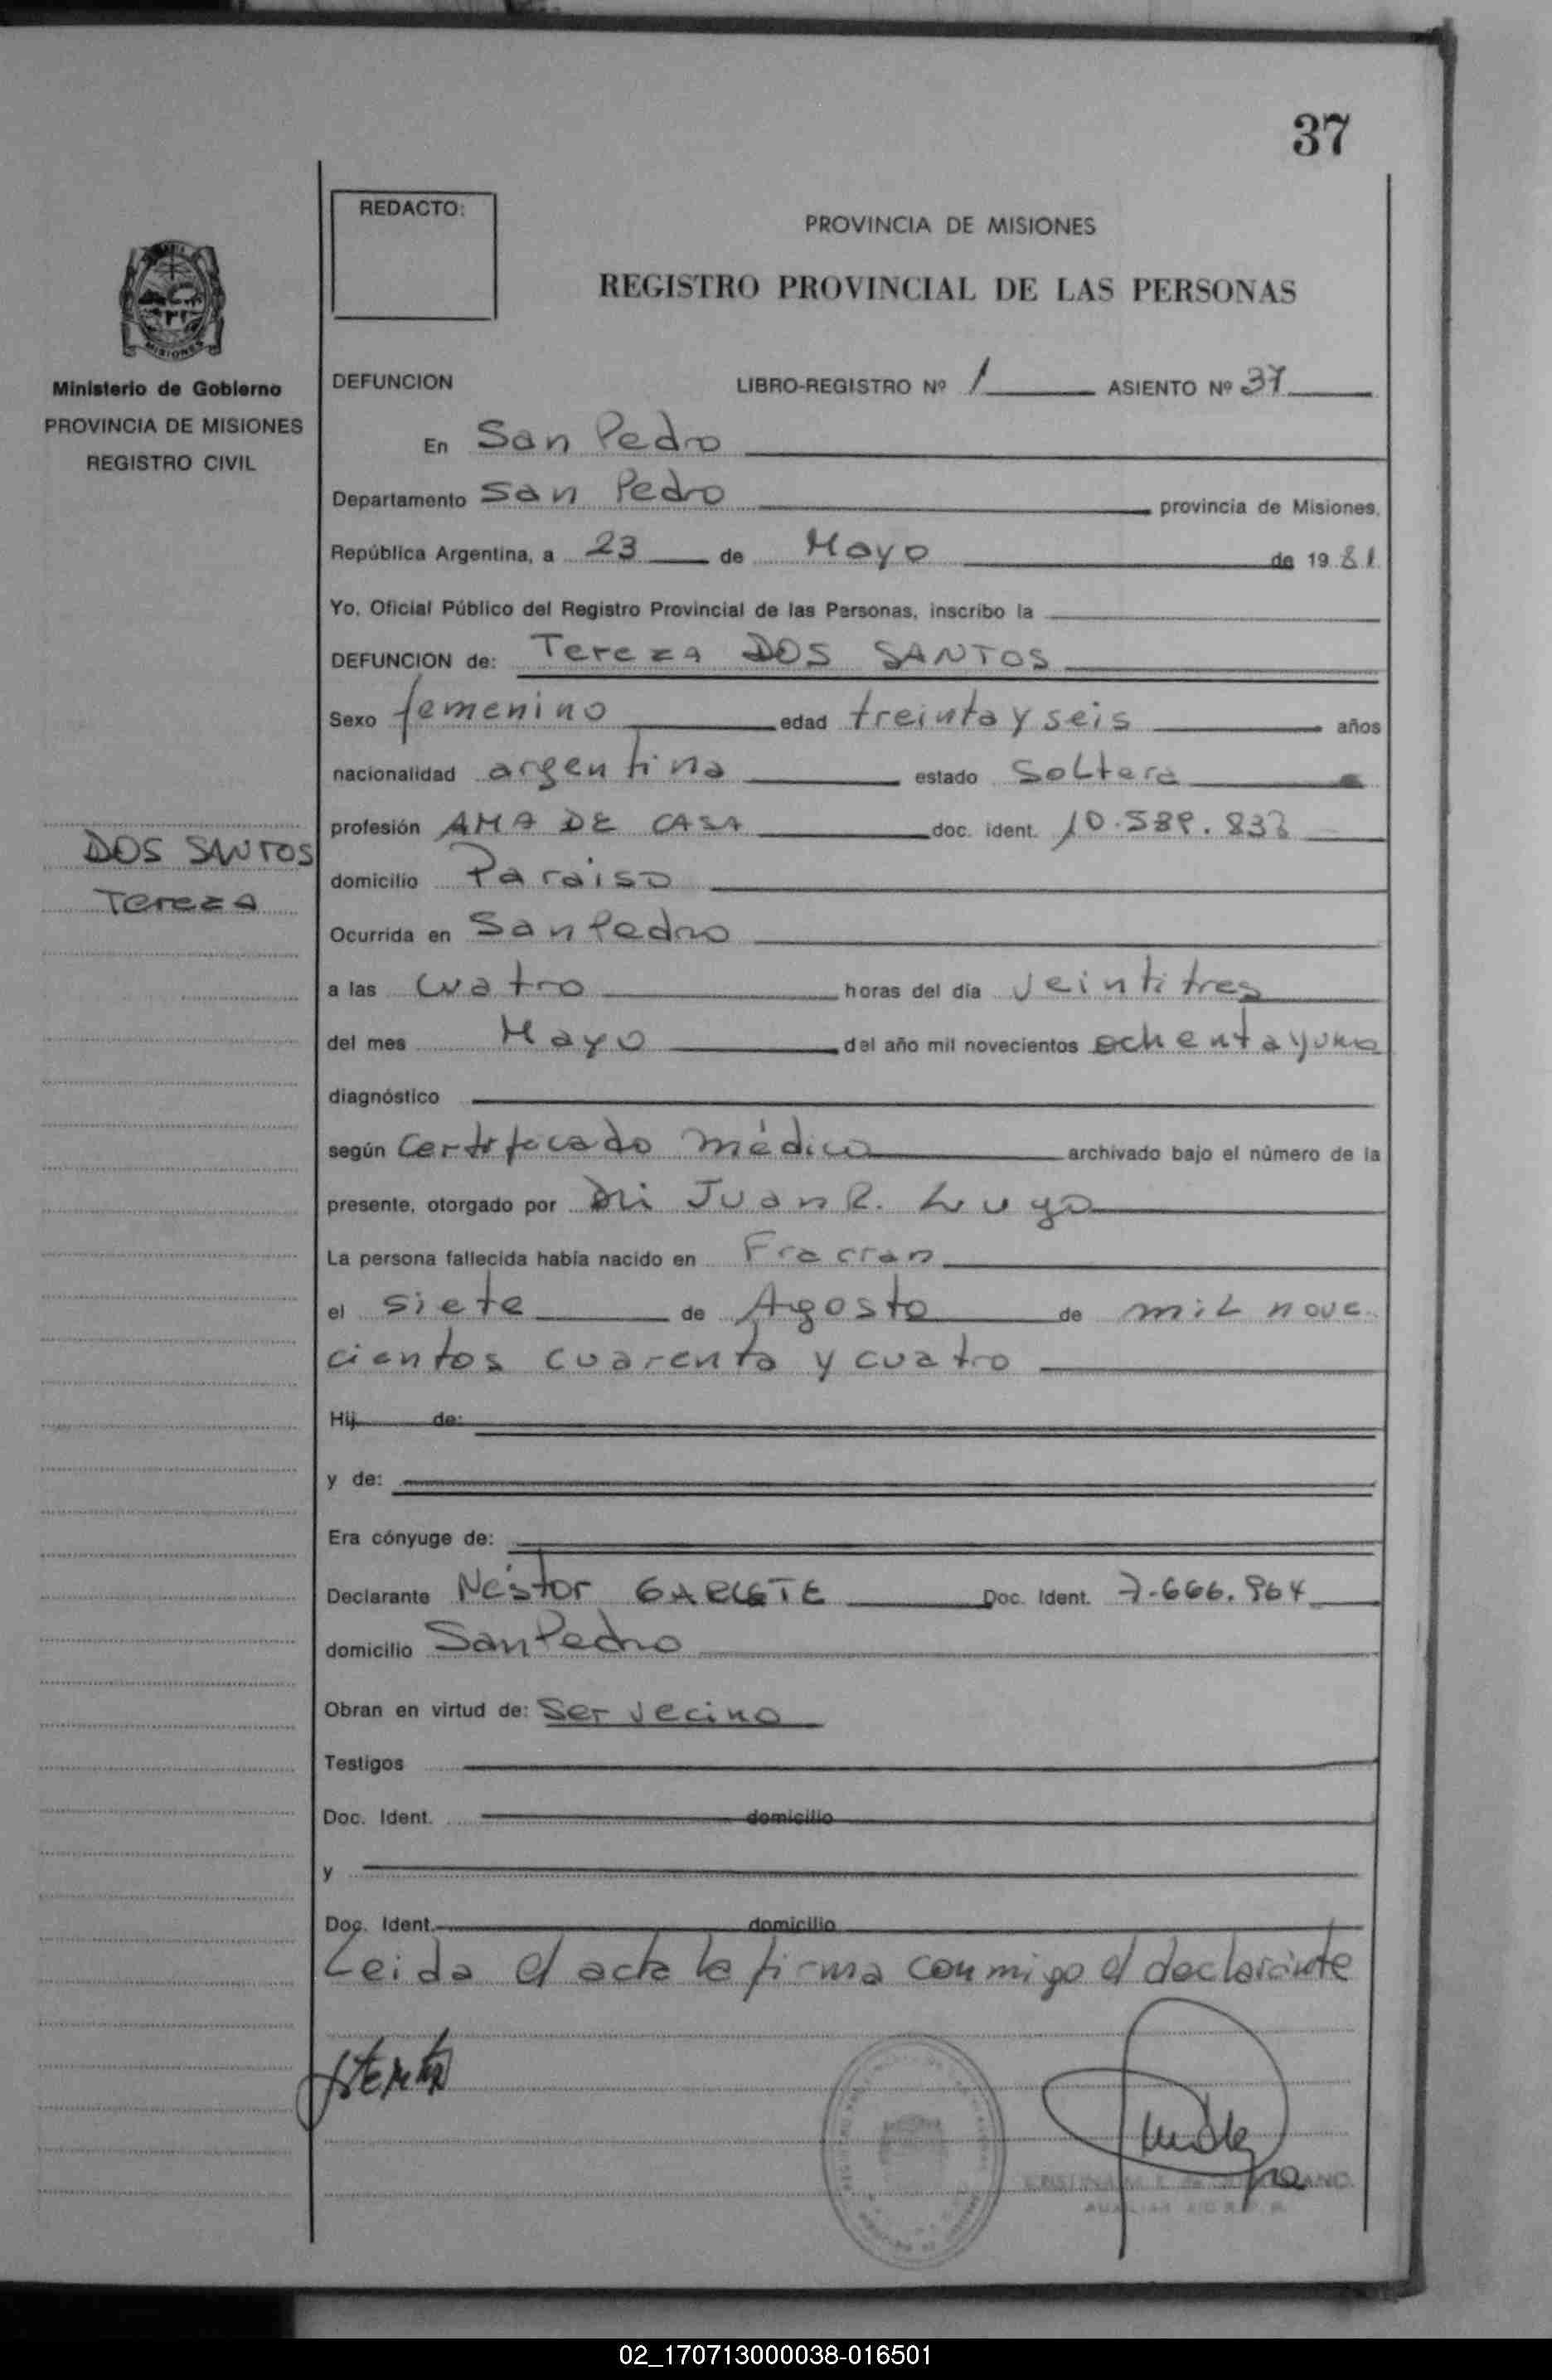 37
REDACTO:
PROVINCIA DE MISIONES
REGISTRO PROVINCIAL DE LAS PERSONAS
MISIONES
Ministerio de Gobierno
PROVINCIA DE MISIONES
REGISTRO CIVIL
DEFUNCION LIBRO-REGISTRO Nº 1 ASIENTO Nº 37
En San Pedro
Departamento San Pedro provincia de Misiones,
República Argentina, a 23 de Mayo de 1981
Yo, Oficial Público del Registro Provincial de las Personas, inscribo la
DEFUNCION de: Tereza DOS SANTOS
Sexo femenino edad treinta y seis años
nacionalidad argentina estado Soltera
profesión AMA DE CASA doc. ident. 10.589.833
DOS SANTOS
Tereza
domicilio Paraiso
Ocurrida en San Pedro
a las cuatro horas del día veintitres
del mes Mayo del año mil novecientos ochenta y uno
diagnóstico
según Certificado médico archivado bajo el número de la
presente, otorgado por Juan R. Lugo
La persona fallecida había nacido en Fracran
el siete de Agosto de mil nove
cientos cuarenta y cuatro
Hij de:
y de:
Era cónyuge de:
Declarante Néstor Doc. Ident. 7.666.964
domicilio San Pedro
Obran en virtud de: Ser vecino
Testigos
Doc. Ident. domicilio
y
Doc. Ident. domicilio
Leida el acta la firma conmigo el declarante
02_170713000038-016501